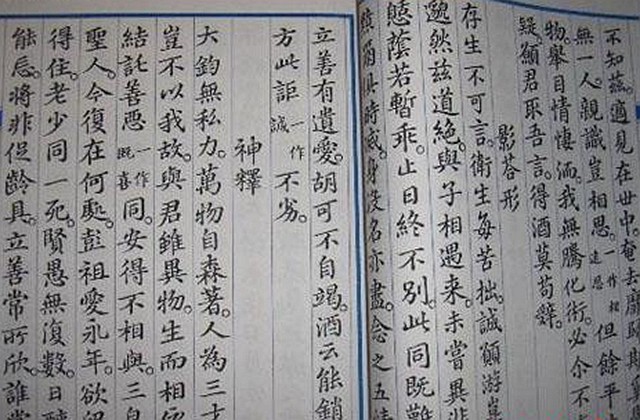 不知茲。適見在世中。奄去靡歸期
無一人。親識豈相思。一作相追思但餘平
物。舉目情悽洏。我無騰化術。必尒不
疑。願君取吾言。得酒莫苟辤。
影荅形
存生不可言。衛生每苦拙。誠願游崑
邈然茲道絕。與子相遇来。未嘗異悲
憇蔭若暫乖。止日終不別。此同既難
黯爾俱時滅。身沒名亦盡。念之五情
立善有遺愛。胡可不自竭。酒云能銷
方此詎一作誠不劣。
神釋
大鈞無私力。萬物自森著。人為三才
豈不以我故。與君雖異物。生而相依
結託善惡一作既喜同。安得不相與。三皇
聖人。今復在何處。彭祖愛永年。欲留
得住。老少同一死。賢愚無復數。日醉
能忘。將非促齡具。立善常所欣。誰當